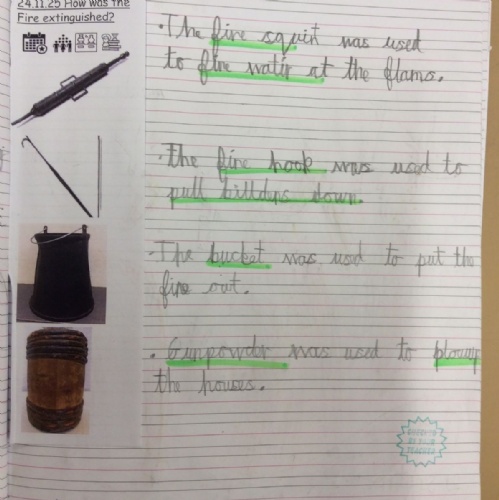 24.11.25 How was the
Fire extinguished?
• The fire squirt was used
to fire water at the flams.
• The fire hook was used to
pull billdigs down.
• The bucket was used to put the
fire out.
• Gunpowder was used to blowup
the houses.